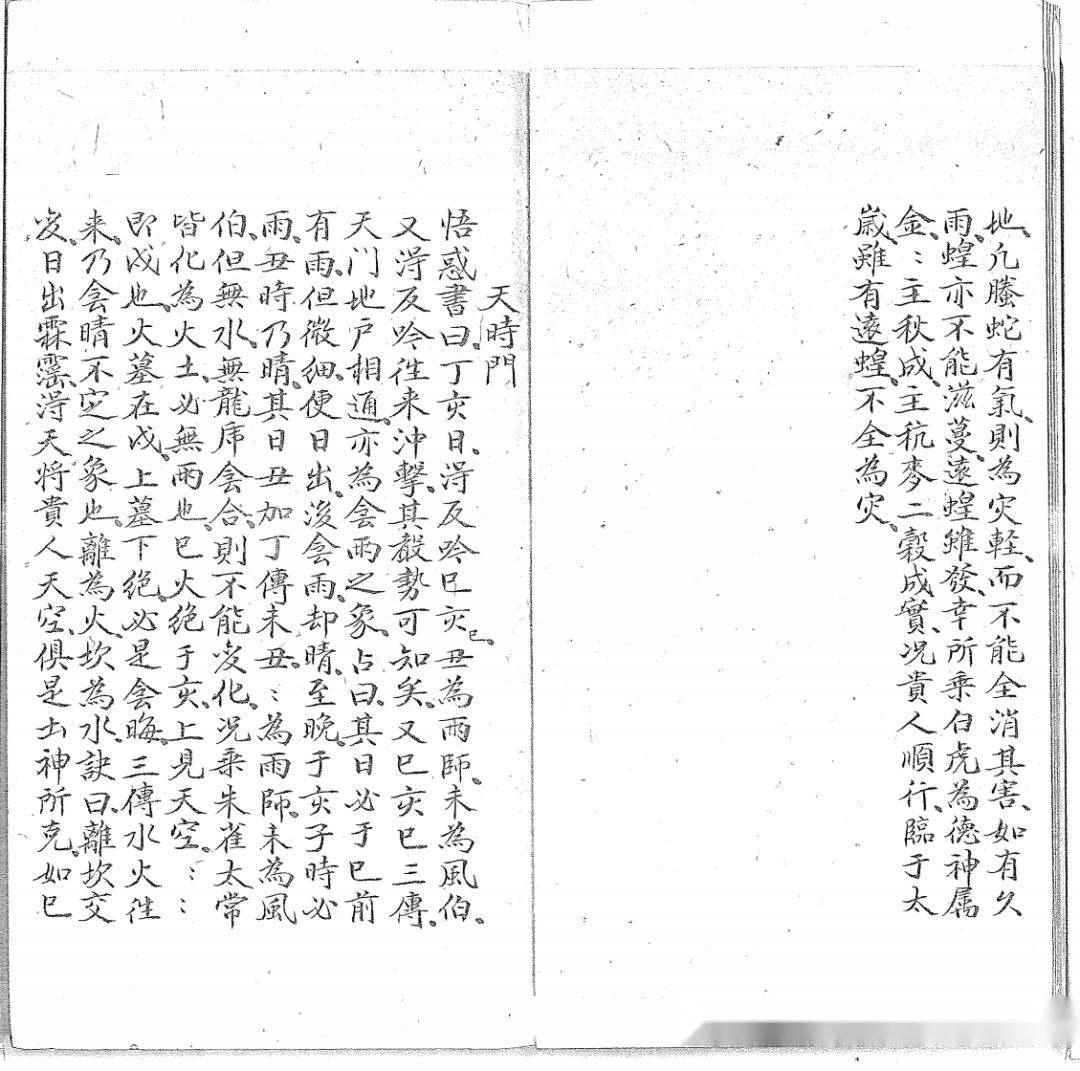 地、凢螣蛇有氣、則為灾輕、而不能全消其害、如有久
雨、蝗亦不能滋蔓、遠蝗雖發、幸所乘白虎為德神属
金、：主秋成、主秔麥二穀成實、况貴人順行、臨于太
歲、雖有遠蝗、不全為灾、
天時門
悟惑書曰、丁亥日、淂反吟巳亥巳、丑為雨師、未為風伯、
又淂反吟徃来沖擊、其殺勢可知矣、又巳亥巳三傳、
天門地户相通、亦為会雨之象、占曰、其日必于巳前
有雨、但微細、便日出、浚会雨、却晴、至晚、于亥子時必
雨、丑時乃晴、其日丑加丁傳未丑、：為雨師、未為風
伯、但無水、無龍乕会合、則不能变化、况乘朱雀太常
皆化為火土、必無雨也、巳火绝于亥、上見天空、：：
即戍也、火墓在戍、上墓下绝、必是会晦、三傳水火徃
来、乃会晴不定之象也、離為火、坎為水、訣曰、離坎交
变、日出霖䨪、淂天将貴人天空、俱是土神所克、如巳